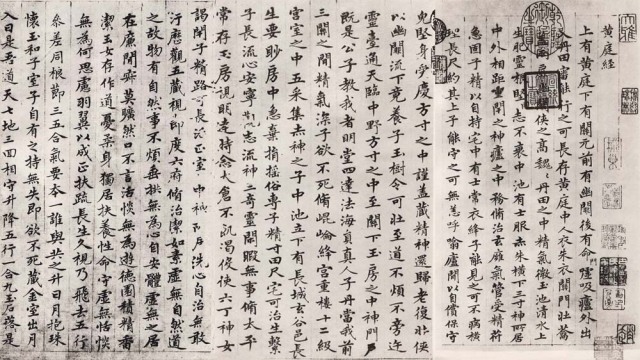 黄庭經
上有黄庭下有關元前有幽闕後有命門嘘吸廬外出
入丹田審能行之可長存黄庭中人衣朱衣關門壯籥
俠之高巍巍丹田之中精氣微玉池清水上
生肥靈根堅志不衰中池有士服赤朱横下三寸神所居
中外相距重閉之神廬之中務脩治玄膺氣管受精符
急固子精以自持宅中有士常衣絳子能見之可不病横
理長尺約其上子能守之可無恙呼噏廬間以自償保守
完堅身受慶方寸之中謹蓋藏精神還歸老復壯俠
以幽闕流下竟養子玉樹令可壯至道不煩不旁迕
靈臺通天臨中野方寸之中至關下玉房之中神門戶
既是公子教我者明堂四達法海員真人子丹當我前
三關之間精氣深子欲不死脩崐崘絳宫重樓十二級
宫室之中五采集赤神之子中池立下有長城玄谷邑長
生要眇房中急棄捐摇俗專子精寸田尺宅可治生繫
子長流心安寧觀志流神三奇靈閒暇無事脩太平
常存玉房視明達時念大倉不飢渴役使六丁神女
謁閉子精路可長活正室之中神所居洗心自治無敢
汙歷觀五藏視節度六府脩治潔如素虚無自然道
之故物有自然事不煩垂拱無為自安體虚無之居
在廉間寂莫曠然口不言恬惔無為遊德園積精香
潔玉女存作道憂柔身獨居扶養性命守虚無恬惔
無為何思慮羽翼以成正扶踈長生久視乃飛去五行
參差同根節三五合氣要本一誰與共之升日月抱珠
懷玉和子室子自有之持無失即欲不死藏金室出月
入日是吾道天七地三回相守升降五行一合九玉石落是